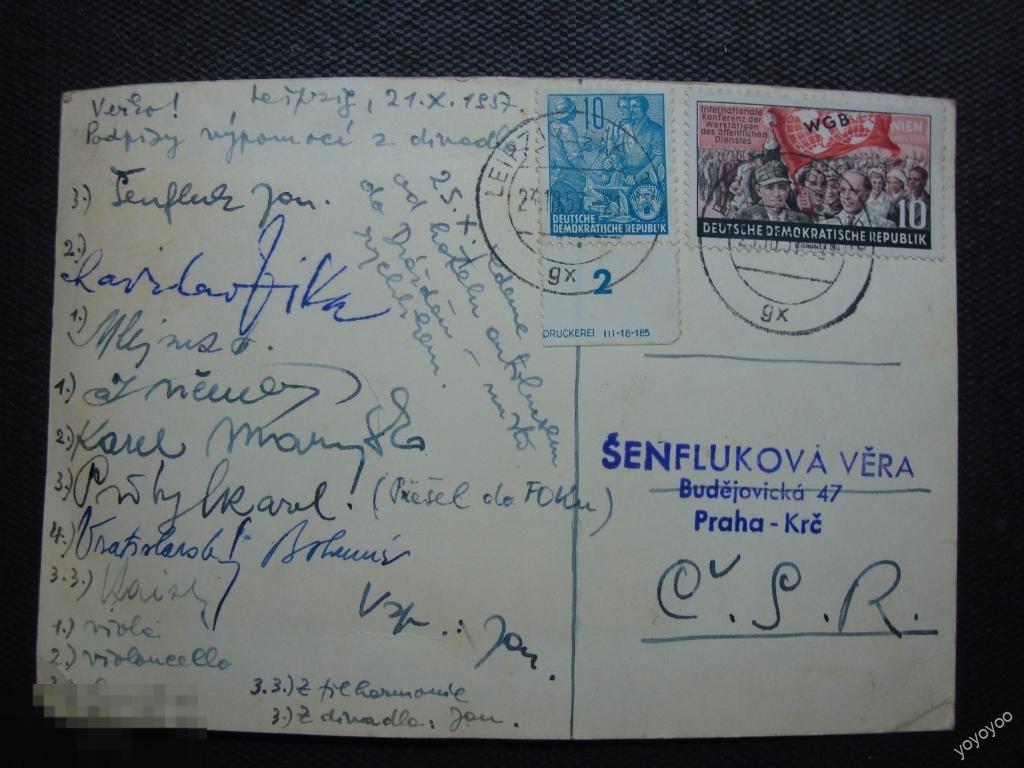 Leipzig, 21.X.1957.
Verko!
Podpisy výpomocí z divadla
25.t. jedeme autobusem
od hotelu
do Drážďan – místo
rychlíkem.
3.) Šenfluk Jan.
2.) Ladislav Jirka
1.)
1.) Němec
2.) Karel
3.) Karel! (Přešel do FOKu)
4.) Vratislavský Bohumír
3.3.)
Vzp.: Jan.
1.) viola
2.) violoncello
3.3.) Z filharmonie
3.) Z divadla: Jan.
LEIPZIG
gx
10
DEUTSCHE
DEMOKRATISCHE REPUBLIK
2
DRUCKEREI III-18-185
Internationale
Konferenz der
Werktätigen
des öffentlichen
Dienstes
WGB
WIEN
10
DEUTSCHE DEMOKRATISCHE REPUBLIK
gx
ŠENFLUKOVÁ VĚRA
Budějovická 47
Praha - Krč
Č.S.R.
yoyoyoo